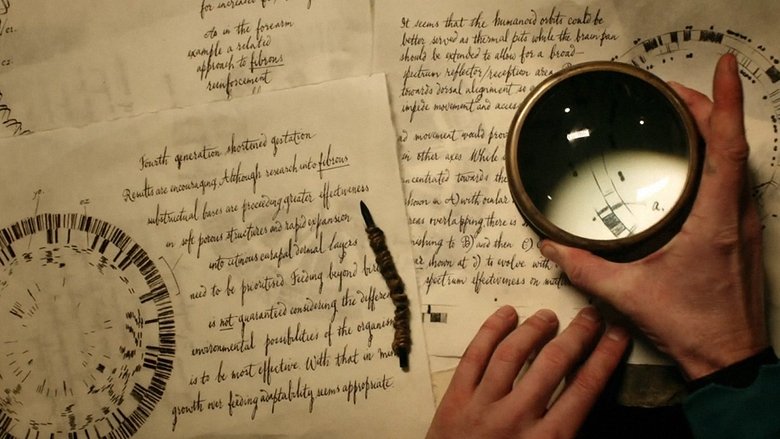 for increase
cto in the forearm
example a related
approach to fibrous
reinforcement
Fourth generation shortened gestation
Results are encouraging. Although research into fibrous
substructural bases are proceeding greater effectiveness
in soft porous structures and rapid expansion
into cutinous carapal dermal layers
need to be prioritised. Feeding beyond
is not guaranteed considering the
environmental possibilities of the
is to be most effective. With that in
growth over feeding adaptability seems appropriate.
It seems that the humanoid orbits could be
better served as thermal pits while the brain-pan
should be extended to allow for a broad-
spectrum reflector/reception
towards dorsal alignment so
impede movement and
movement would
in other axes.
towards the
shown in A) with
areas overlapping there is
to B) and then
shown at d) to evolve with
effectiveness on
a.